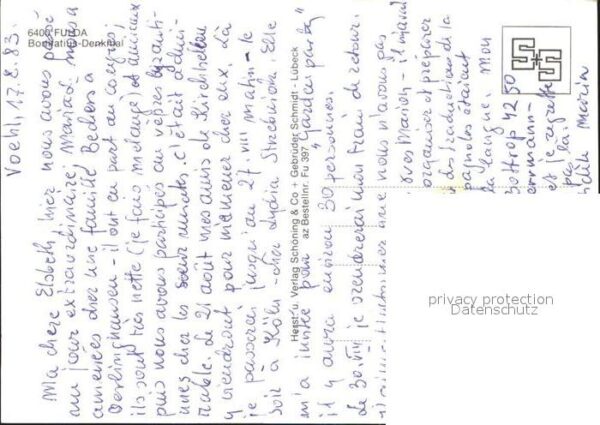 6400 FULDA
Bonifatius-Denkmal
Voehl, 17.8.83.
Ma chère Elsbeth, hier nous avons passé
un jour extraordinaire, Manfred nous a
amenées chez une famille Beckers a
Oerlinghausen - il ont eu part au congrès;
ils sont très nette (je fais melange) et amicaux
puis nous avons participé au vêpres byzanti-
nes chez les soeur c'était admi-
rable. Le 21 août mes amis de Kirchhellen
y viendront pour m'emener chez eux. Là
je passerai jusqu'au 27.VIII matin - le
soir à Köln chez Lydia. Elle
m'a invité pour "Garten party"
il y aura environ 30 personnes.
Le 30.VIII je prendrai mon train de retour.
nous n'avons pas
Marion - il
organiser et préparer
des traductions de la
étant
la langue. Mon
Bottrop 42 50
et je regrette
pas
Herst. u. Verlag Schöning & Co + Gebrüder Schmidt - Lübeck
az Bestellnr. Fu 397
privacy protection
Datenschutz